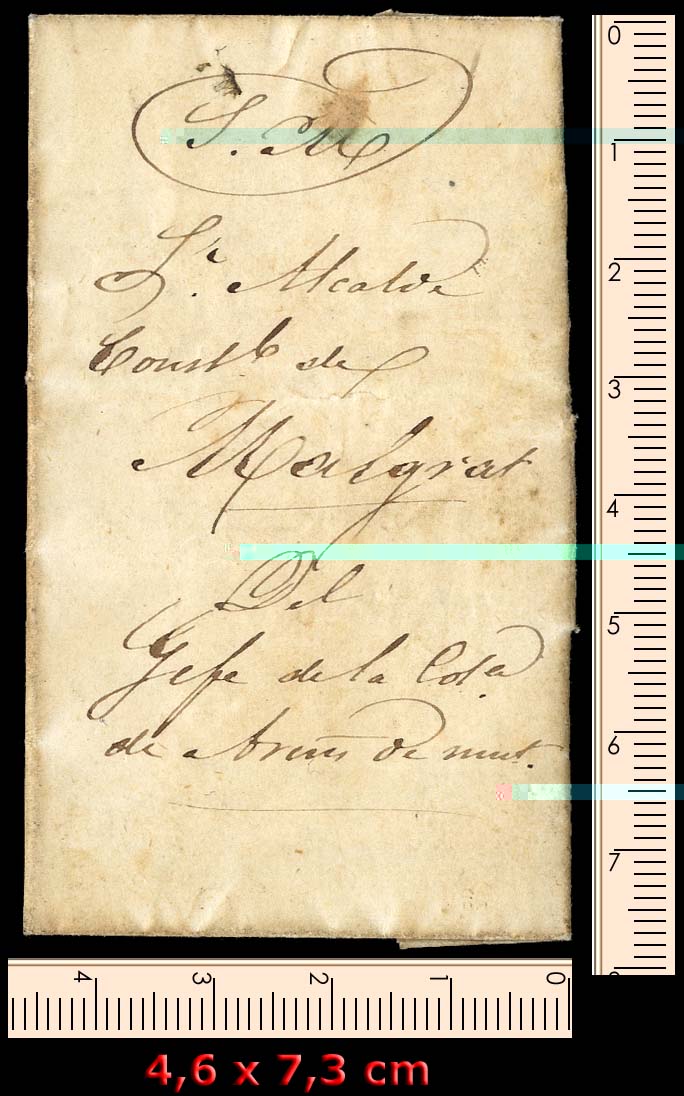 S. M
Sr. Alcalde
Constl de
Malgrat
Del
Gefe de la Cola
de Arens de mut.
0
1
2
3
4
5
6
7
8
4 3 2 1 0
4,6 x 7,3 cm